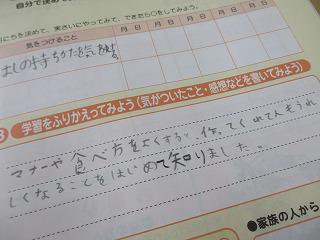 自分で決め
日にちを決めて、実さいにやってみて、できたら○をしてみよう。
気をつけること
月 日 月 日 月 日 月 日
はしの持ちかたを気を付る。
3 学習をふりかえってみよう(気がついたこと・感想などを書いてみよう)
マナーや食べ方をよくすると、作ってくれて人もうれ
しくなることをはじめて知りました。
●家族の人から